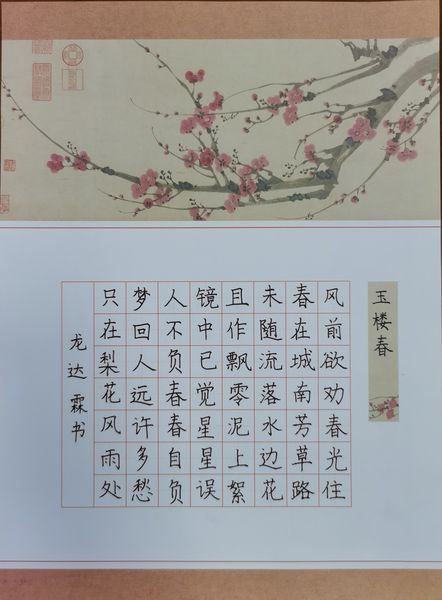 玉楼春
风前欲劝春光住
春在城南芳草路
未随流落水边花
且作飘零泥上絮
镜中已觉星星误
人不负春春自负
梦回人远许多愁
只在梨花风雨处
龙达霖书